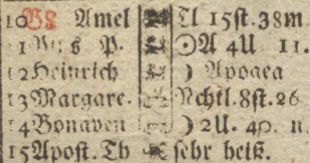 10 Amel Tl 15st.38m
11 P. ☉A 4U 11.
12Heinrich ☽ Apogea
13Margare. Nchtl.8st.26
14Bonaven ☽ 2U. 40. n.
15Apost.Th sehr heiß.